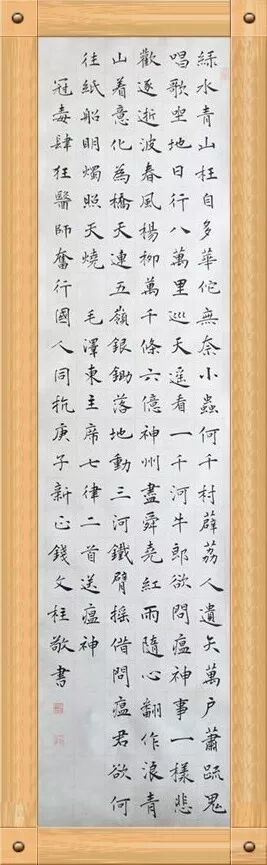 綠水青山枉自多華佗無奈小蟲何千村薜荔人遺矢萬户蕭疏鬼
唱歌坐地日行八萬里巡天遥看一千河牛郎欲問瘟神事一樣悲
歡逐逝波春風楊柳萬千條六億神州盡舜堯紅雨隨心翻作浪青
山着意化為橋天連五嶺銀鋤落地動三河鐵臂摇借問瘟君欲何
往紙船明燭照天燒 毛澤東主席七律二首送瘟神
冠毒肆狂醫師奮行國人同抗庚子新正錢文柱敬書